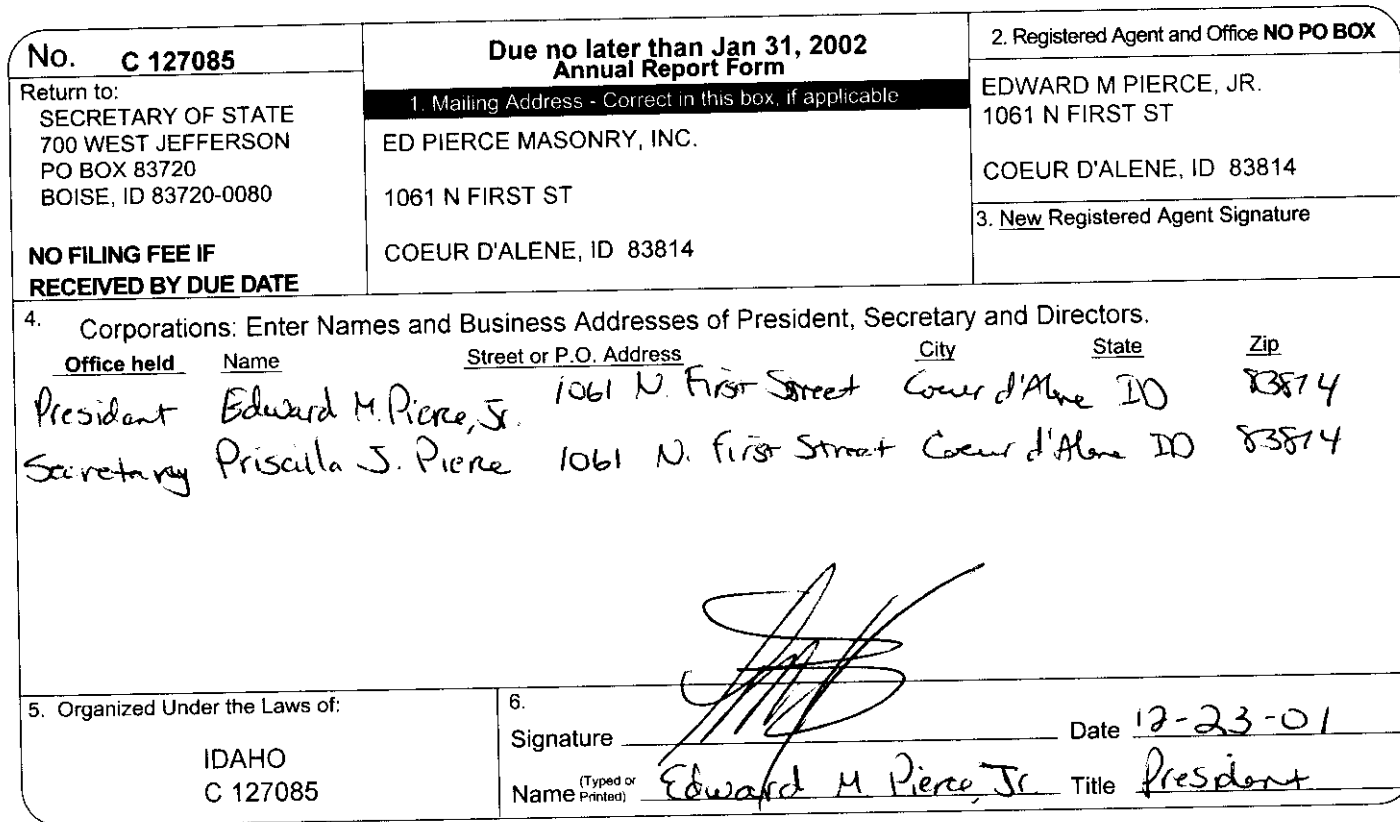 No. C 127085
Return to:
SECRETARY OF STATE
700 WEST JEFFERSON
PO BOX 83720
BOISE, ID 83720-0080
NO FILING FEE IF
RECEIVED BY DUE DATE
Due no later than Jan 31, 2002
Annual Report Form
1. Mailing Address - Correct in this box, if applicable
ED PIERCE MASONRY, INC.
1061 N FIRST ST
COEUR D'ALENE, ID 83814
2. Registered Agent and Office NO PO BOX
EDWARD M PIERCE, JR.
1061 N FIRST ST
COEUR D'ALENE, ID 83814
3. New Registered Agent Signature
4. Corporations: Enter Names and Business Addresses of President, Secretary and Directors.
Office held Name Street or P.O. Address City State Zip
President Edward M. Pierce, Jr. 1061 N. First Street Coeur d'Alene ID 83814
Secretary Priscilla J. Pierce 1061 N. First Street Coeur d'Alene ID 83814
5. Organized Under the Laws of:
IDAHO
C 127085
6.
Signature Date 12-23-01
Name (Typed or Printed) Edward M Pierce, Jr. Title President